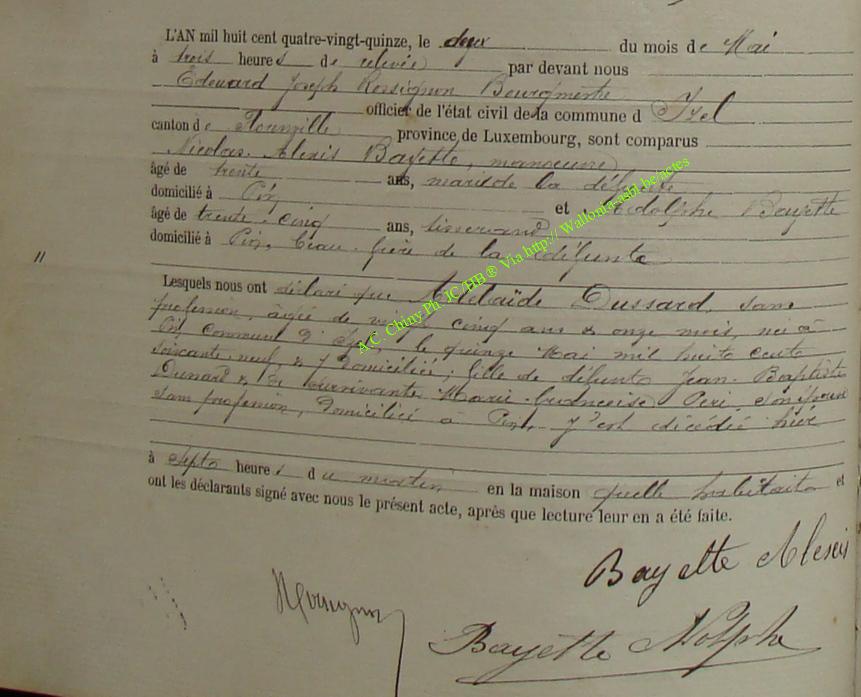 L'AN mil huit cent quatre-vingt-quinze, le deux du mois de Mai
à trois heures de relevée par devant nous
Edouard Joseph Rossignon Bourgmestre
officier de l'état civil de la commune d'Izel
canton de Florenville province de Luxembourg, sont comparus
Nicolas Alexis Bayette, manoeuvre
âgé de trente ans, mari de la défunte
domicilié à Pin et Adolphe Bayette
âgé de trente-cinq ans, tisserand
domicilié à Pin, beau-frère de la défunte
Lesquels nous ont déclaré que Adélaïde Dussard, sans
profession, âgée de vingt cinq ans & onze mois, née à
Pin commune d'Izel, le quinze Mai mil huit cent
soixante-neuf, & y domiciliée; fille de défunt Jean-Baptiste
Dussard & de survivante Marie-Françoise son épouse
sans profession, domiciliée à Pin, y est décédée hier
à sept heures du matin en la maison qu'elle habitait et
ont les déclarants signé avec nous le présent acte, après que lecture leur en a été faite.
Bayette Alexis
Bayette Adolphe
A.C. Chiny Ph JC/HB ® Via http:// Wallonia-asbl.be/actes